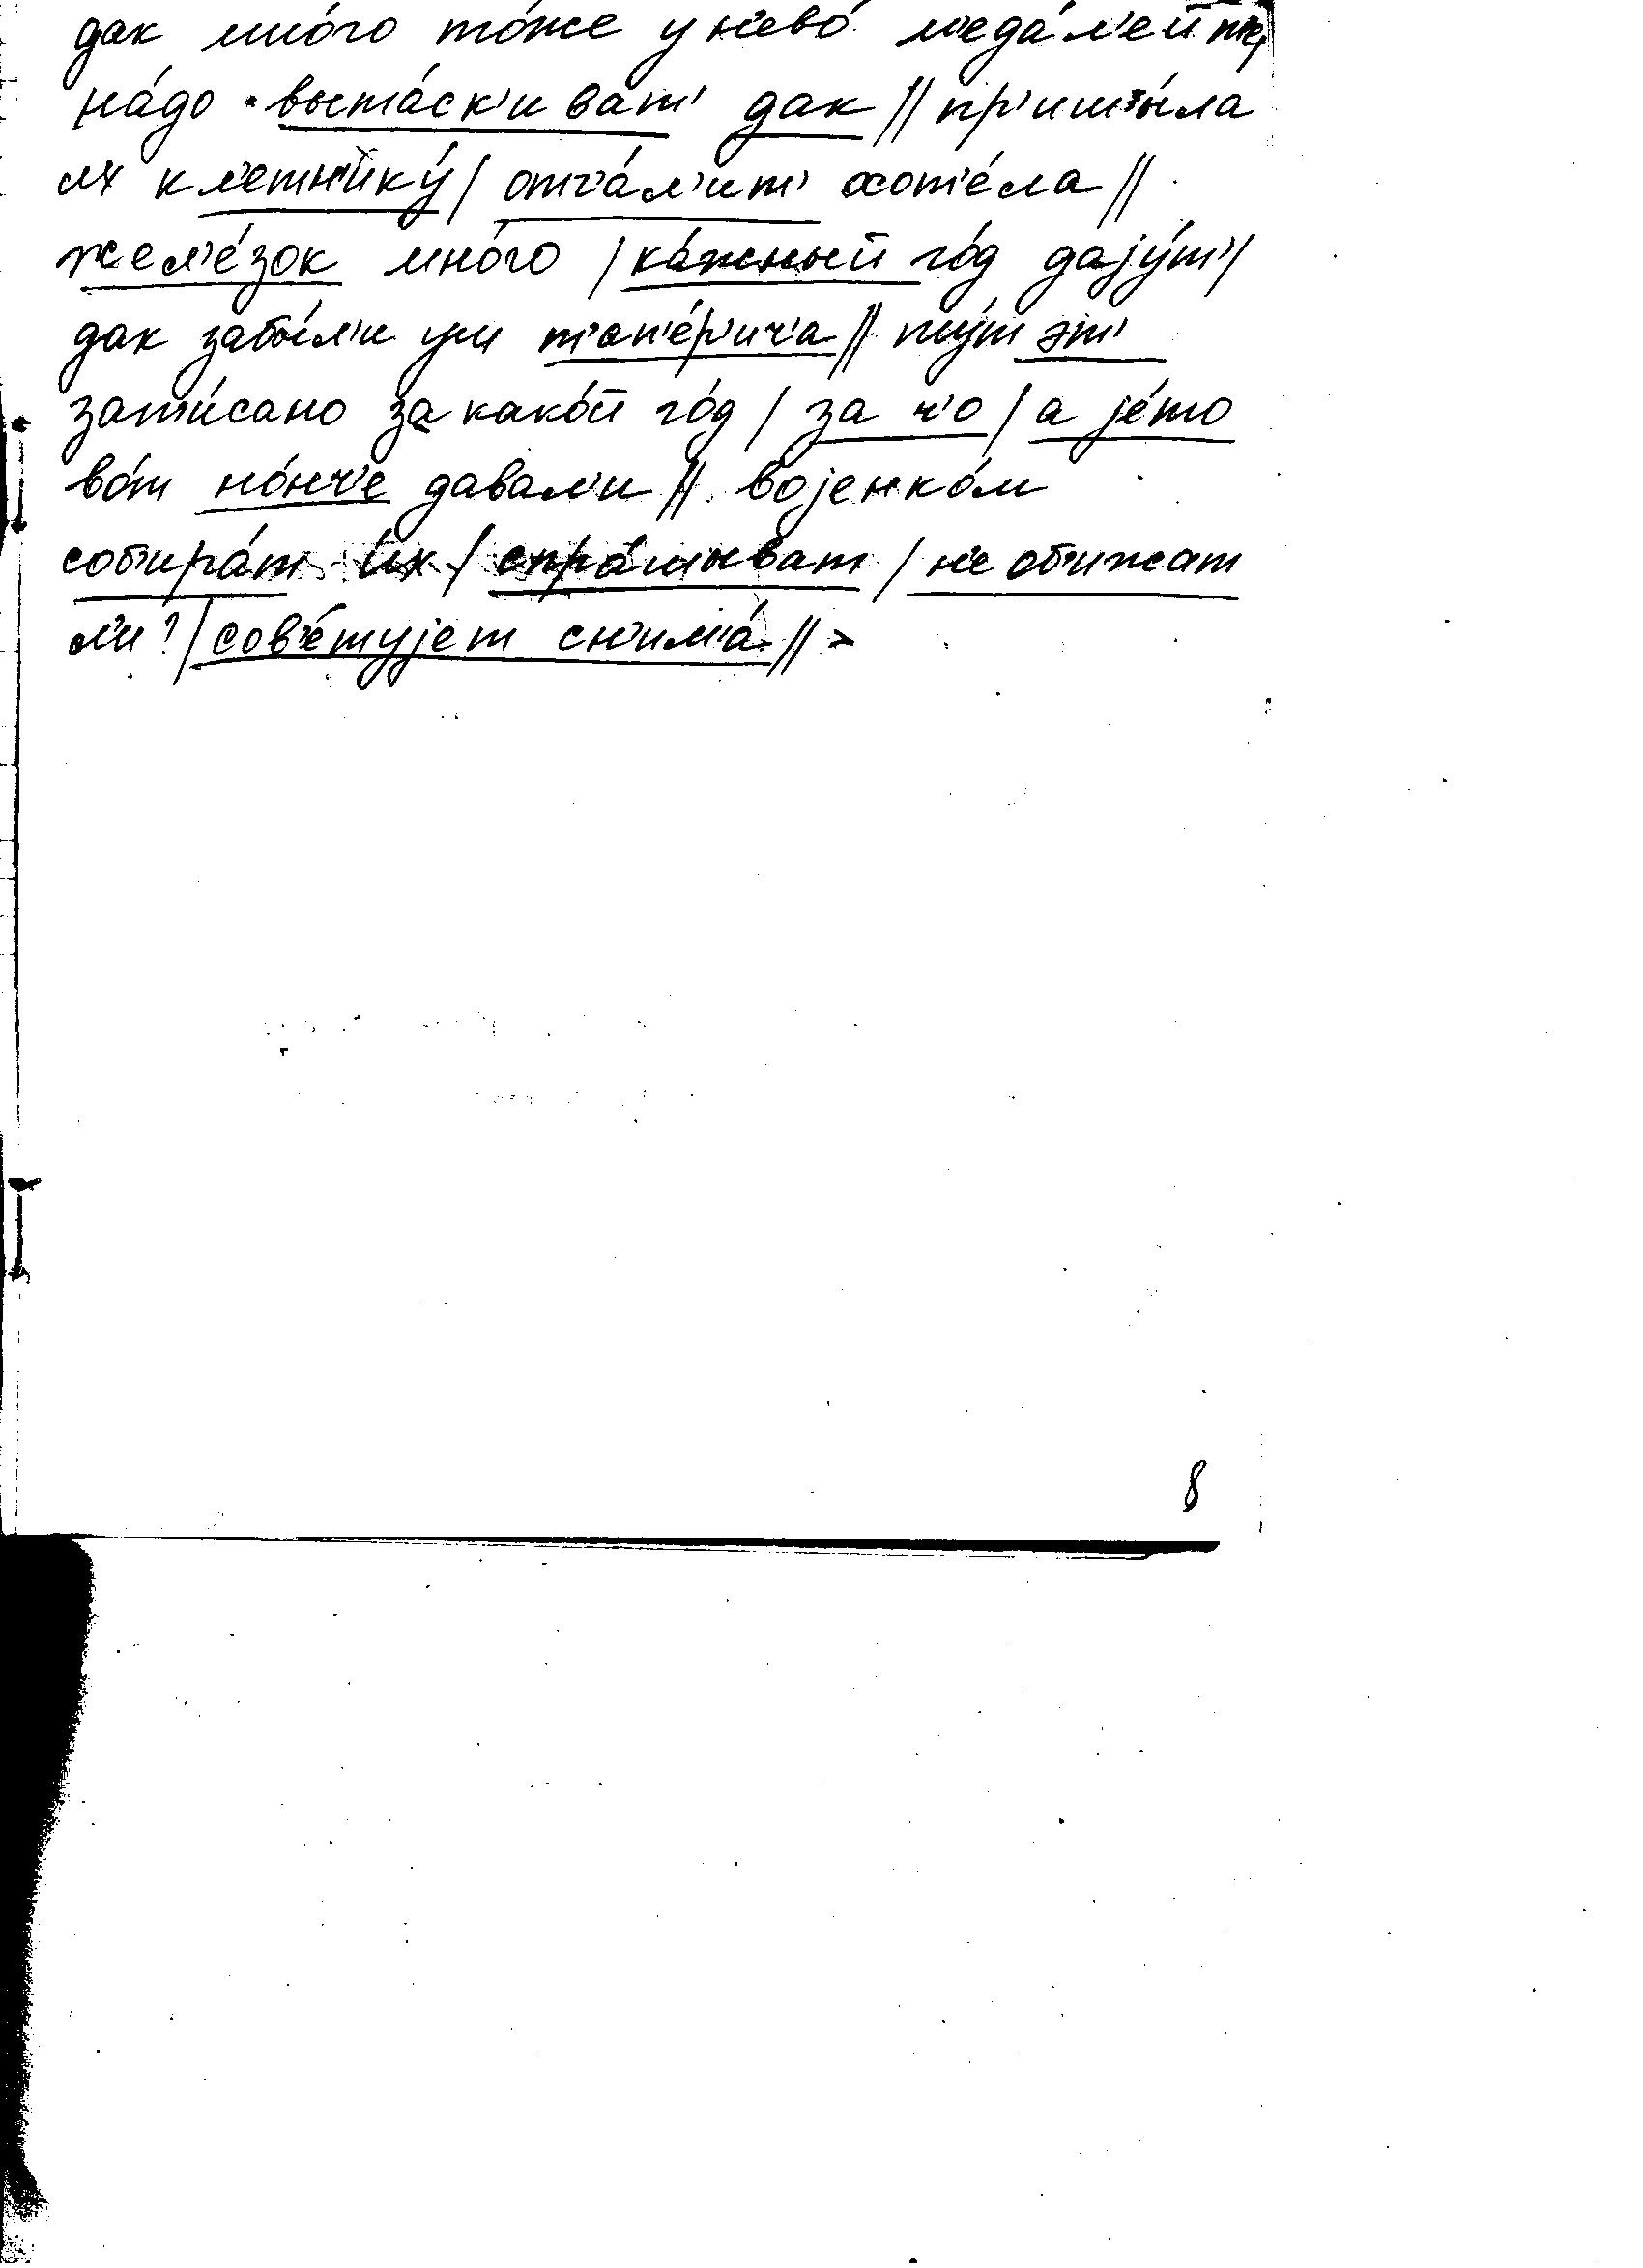 дак мно́го то́же у н'ево́ м'еда́л'ей
на́до выта́ск'иват' дак // пр'ишы́ла
их к л'етн'ику́ / отча́л'ит' хот'е́ла //
жел'е́зок мно́го / ка́жный го́д даjу́т //
дак забы́л'и уш т'еп'е́р'ич'а // ту́т эт'
зап'и́сано за како́й го́д / за ч'о / а jе́то
во́т но́нч'е давал'и // воjенко́м
соб'ира́т их / спра́шыват / н'е об'ижат
л'и? / сов'е́туjет сн'има́ //
8